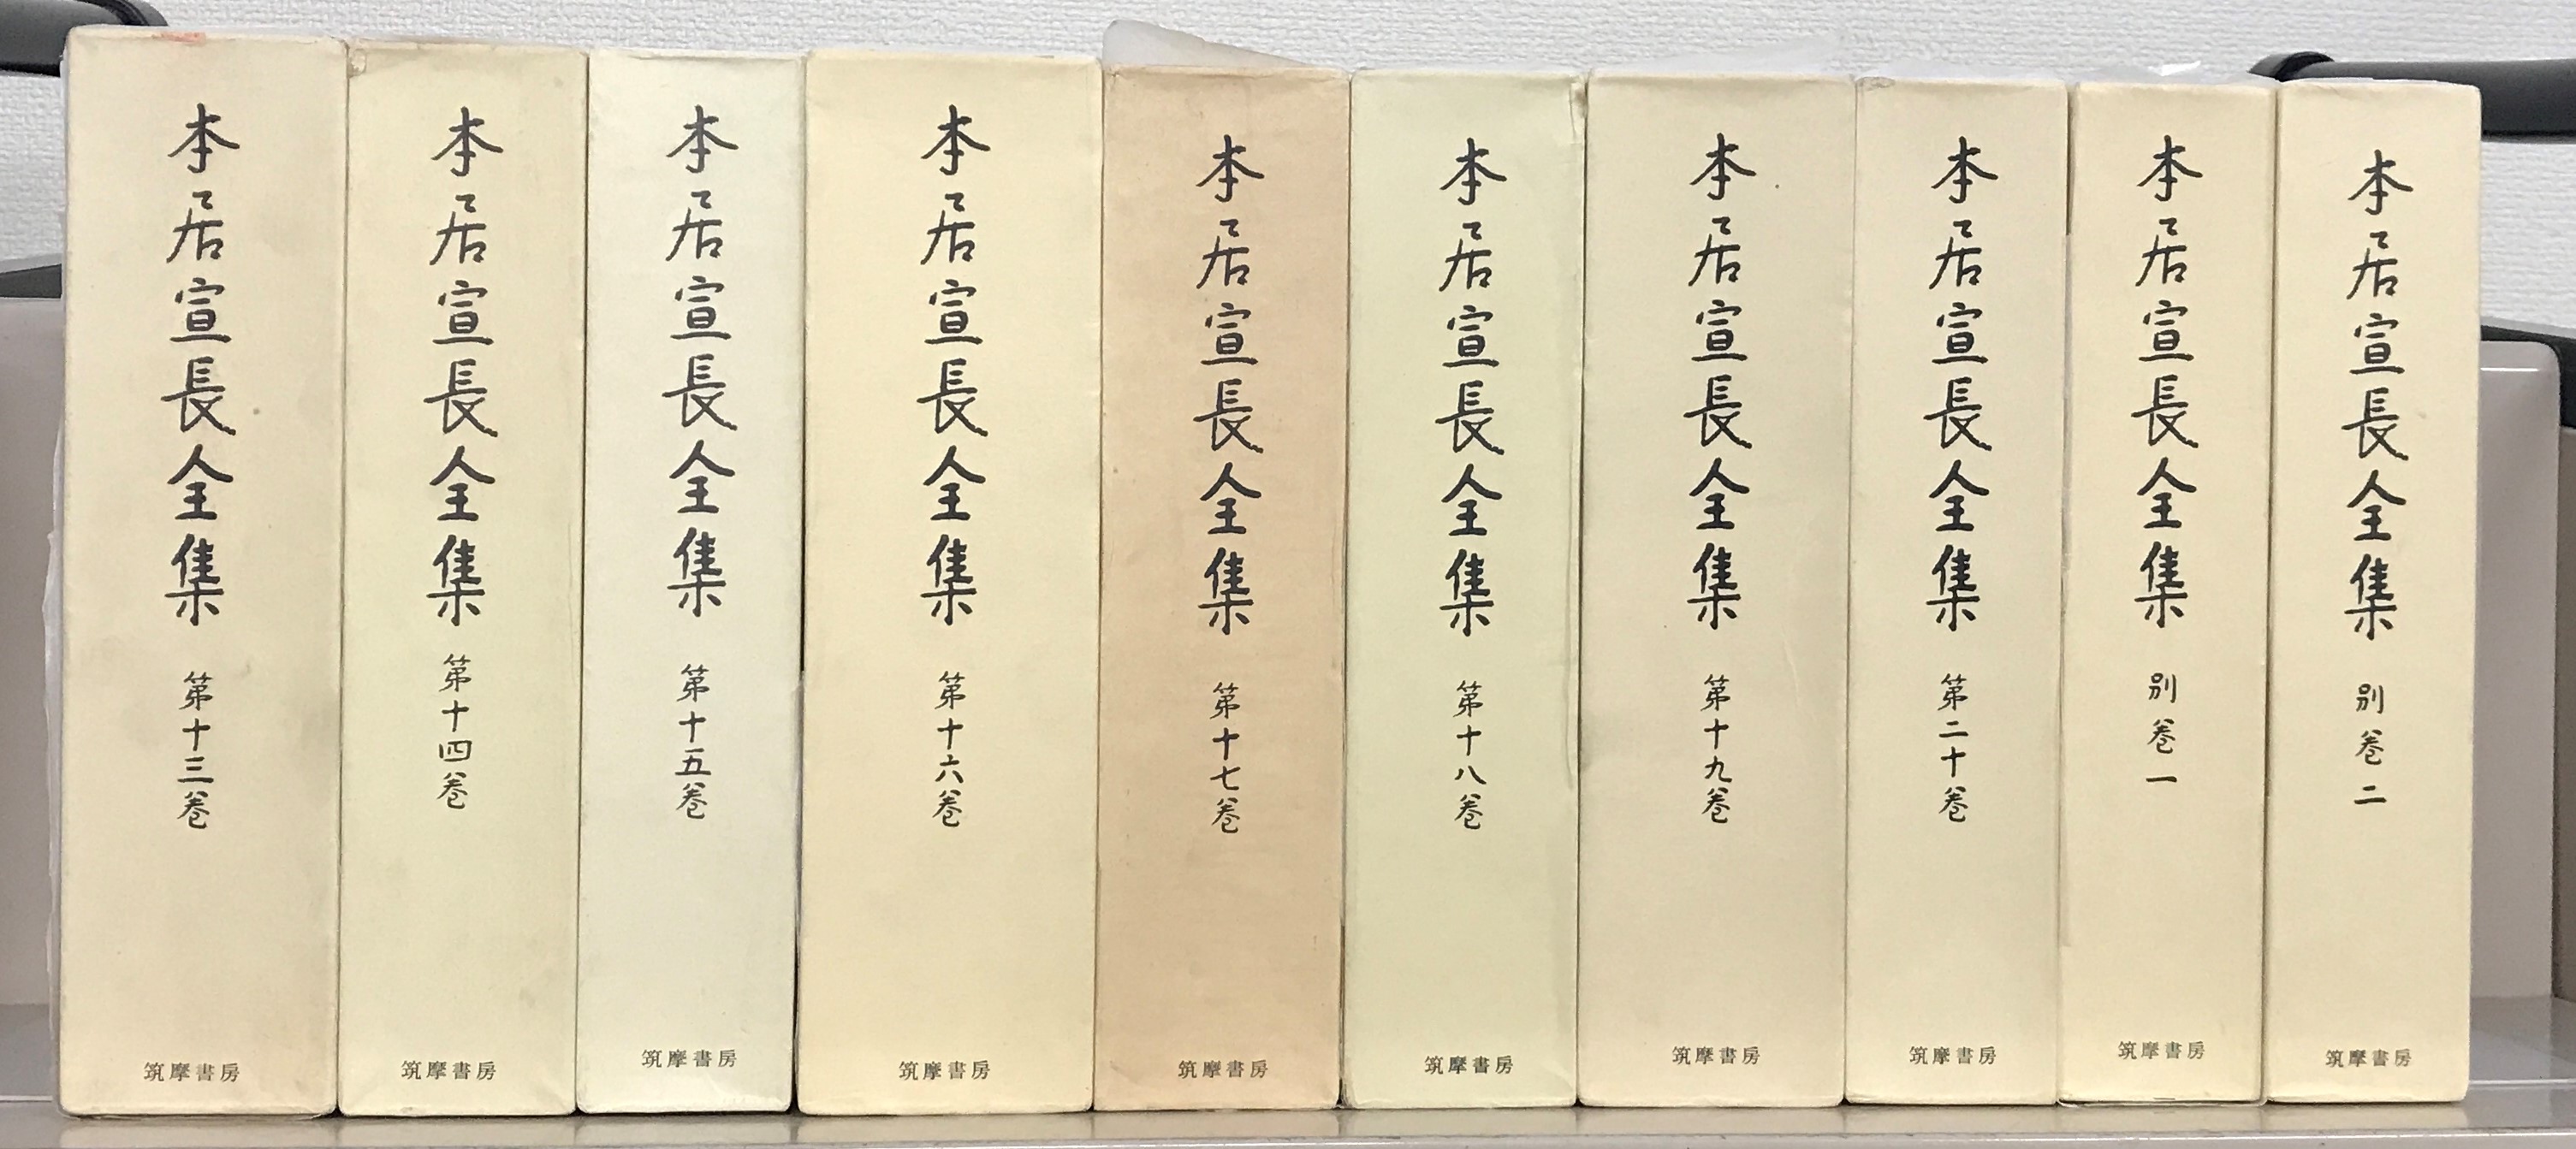 本居宣長全集 第十三巻 筑摩書房
本居宣長全集 第十四巻 筑摩書房
本居宣長全集 第十五巻 筑摩書房
本居宣長全集 第十六巻 筑摩書房
本居宣長全集 第十七巻 筑摩書房
本居宣長全集 第十八巻 筑摩書房
本居宣長全集 第十九巻 筑摩書房
本居宣長全集 第二十巻 筑摩書房
本居宣長全集 別巻一 筑摩書房
本居宣長全集 別巻二 筑摩書房